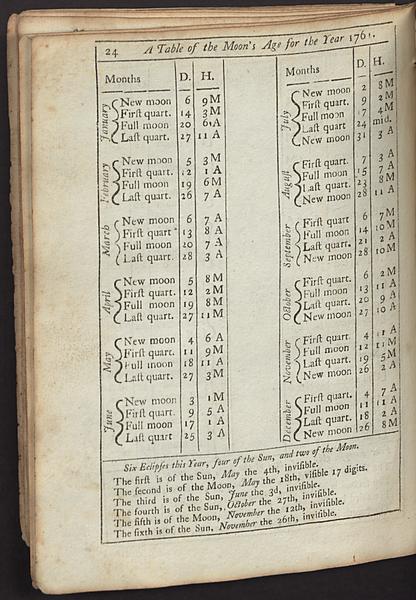 24 A Table of the Moon's Age for the Year 1761.
Months D. H.
January
New moon 6 9 M
First quart. 14 3 M
Full moon 20 6 A
Last quart. 27 11 A
February
New moon 5 3 M
First quart. 12 1 A
Full moon 19 6 M
Last quart. 26 7 A
March
New moon 6 7 A
First quart 13 8 A
Full moon 20 7 A
Last quart. 28 3 A
April
New moon 5 8 M
First quart. 12 2 M
Full moon 19 8 M
Last quart. 27 11 M
May
New moon 4 6 A
First quart. 11 9 M
Full moon 18 11 A
Last quart. 27 3 M
June
New moon 3 1 M
First quart. 9 5 A
Full moon 17 1 A
Last quart 25 3 A
Months D. H.
July
New moon 2 8 M
First quart. 9 2 M
Full moon 17 4 M
Last quart 24 mid.
New moon 31 3 A
August
First quart. 7 3 A
Full moon 15 7 A
Last quart. 23 8 M
New moon 28 11 A
September
First quart 6 7 M
Full moon 14 10 M
Last quart. 21 2 A
New moon 28 10 M
October
First quart. 6 2 M
Full moon 13 11 A
Last quart. 20 9 A
New moon 27 10 A
November
First quart. 4 11 A
Full moon 12 11 M
Last quart. 19 5 M
New moon 26 2 A
December
First quart. 4 7 A
Full moon 11 11 A
Last quart. 18 2 A
New moon 26 8 M
Six Eclipses this Year, four of the Sun, and two of the Moon.
The first is of the Sun, May the 4th, invisible.
The second is of the Moon, May the 18th, visible 17 digits.
The third is of the Sun, June the 3d, invisible.
The fourth is of the Sun, October the 27th, invisible.
The fifth is of the Moon, November the 12th, invisible.
The sixth is of the Sun, November the 26th, invisible.